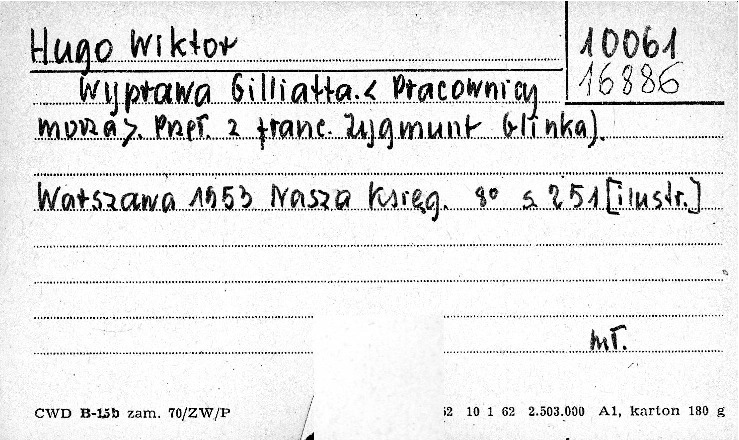 Hugo Wiktor
10061
16886
Wyprawa Gilliatta. < Pracownicy
morza >. Przeł. z franc. Zygmunt Glinka).
Warszawa 1953 Nasza Księg. 8° s 251 [ilustr.]
mł.
CWD B-15b zam. 70/ZW/P
52 10 1 62 2.503.000 A1, karton 180 g